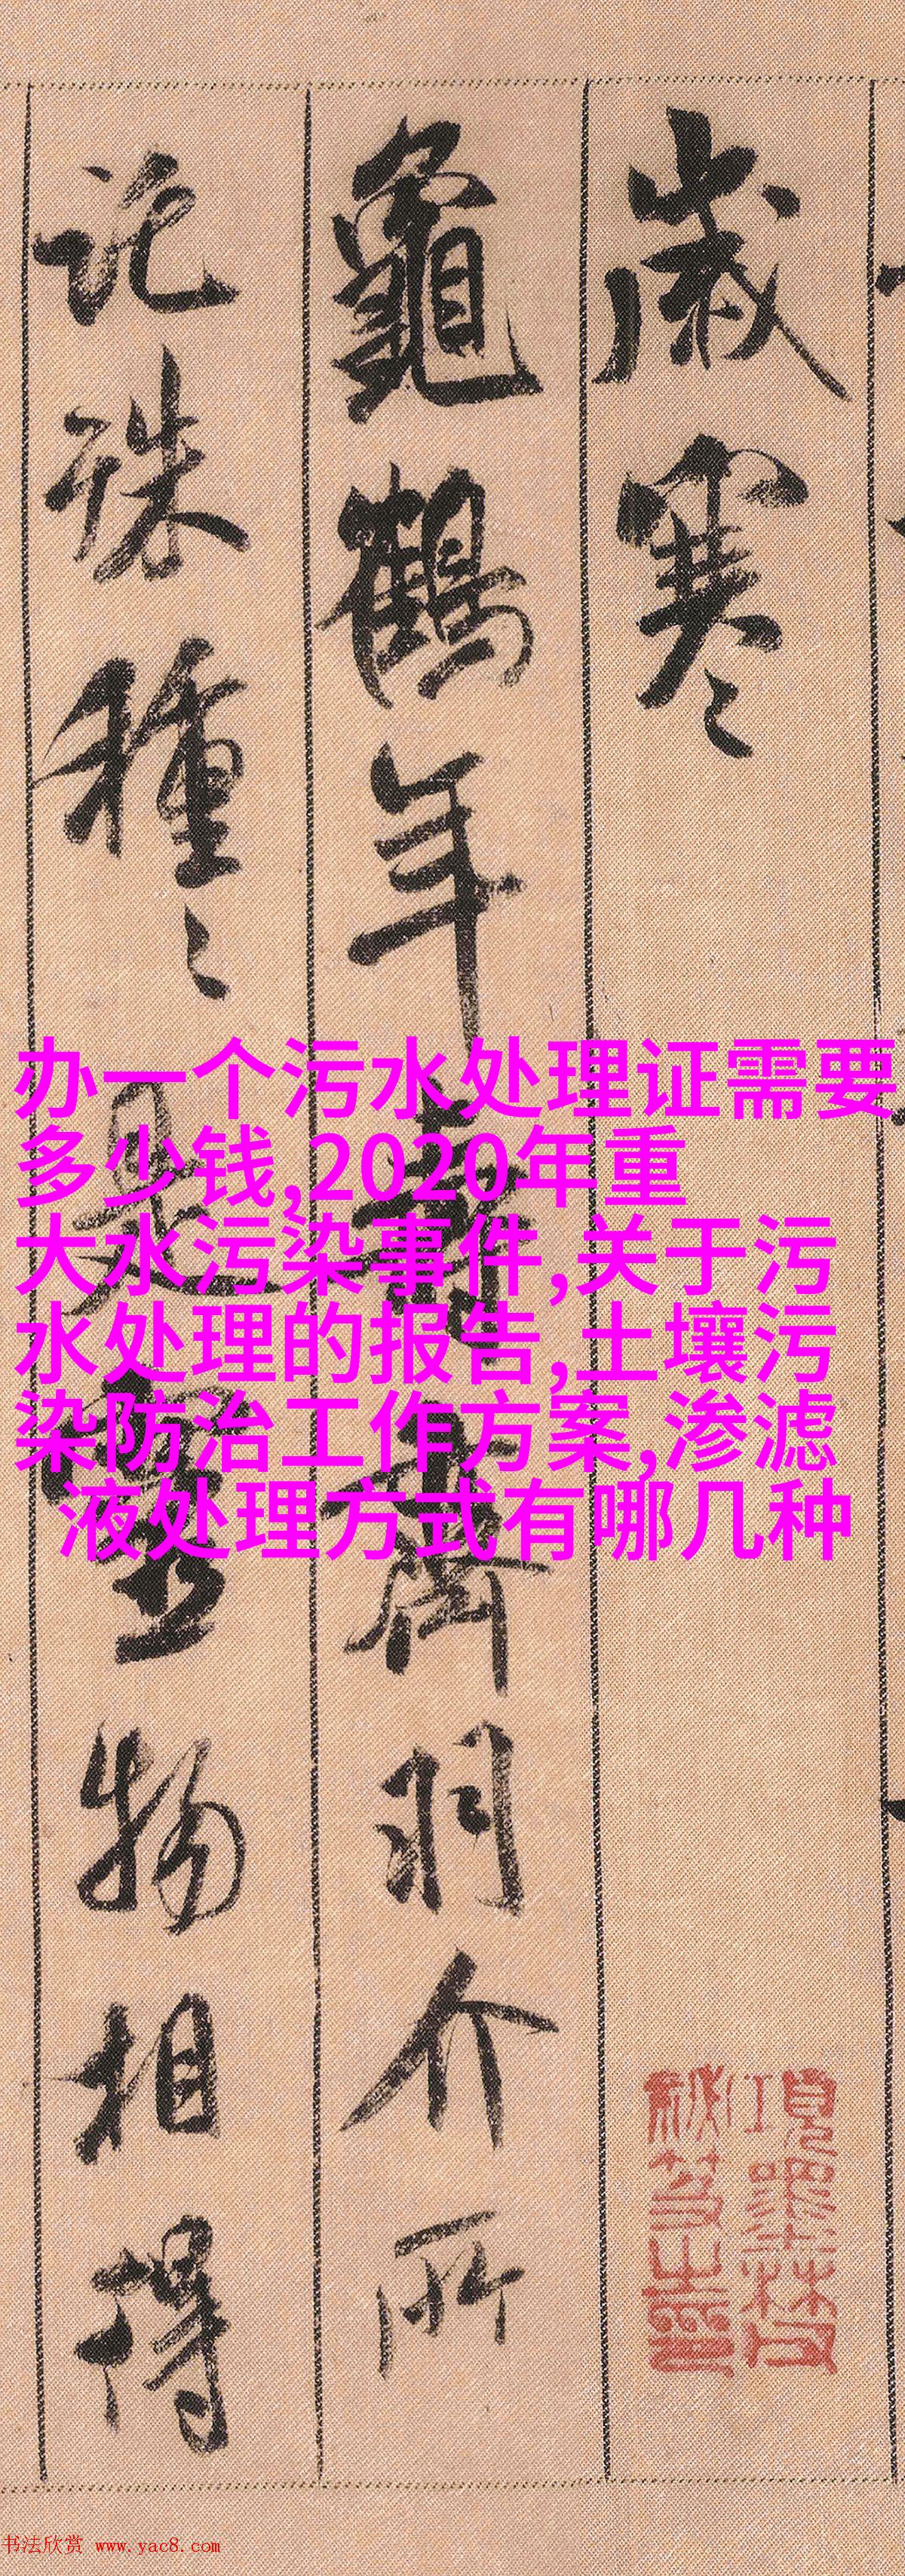 歲寒
龜鶴年壽齊羽介所
託殊種〻是靈物相得
办一个污水处理证需要
多少钱,2020年重
大水污染事件,关于污
水处理的报告,土壤污
染防治工作方案,渗滤
液处理方式有哪几种
项墨林父
秘笈之印
书法欣赏 www.yac8.com